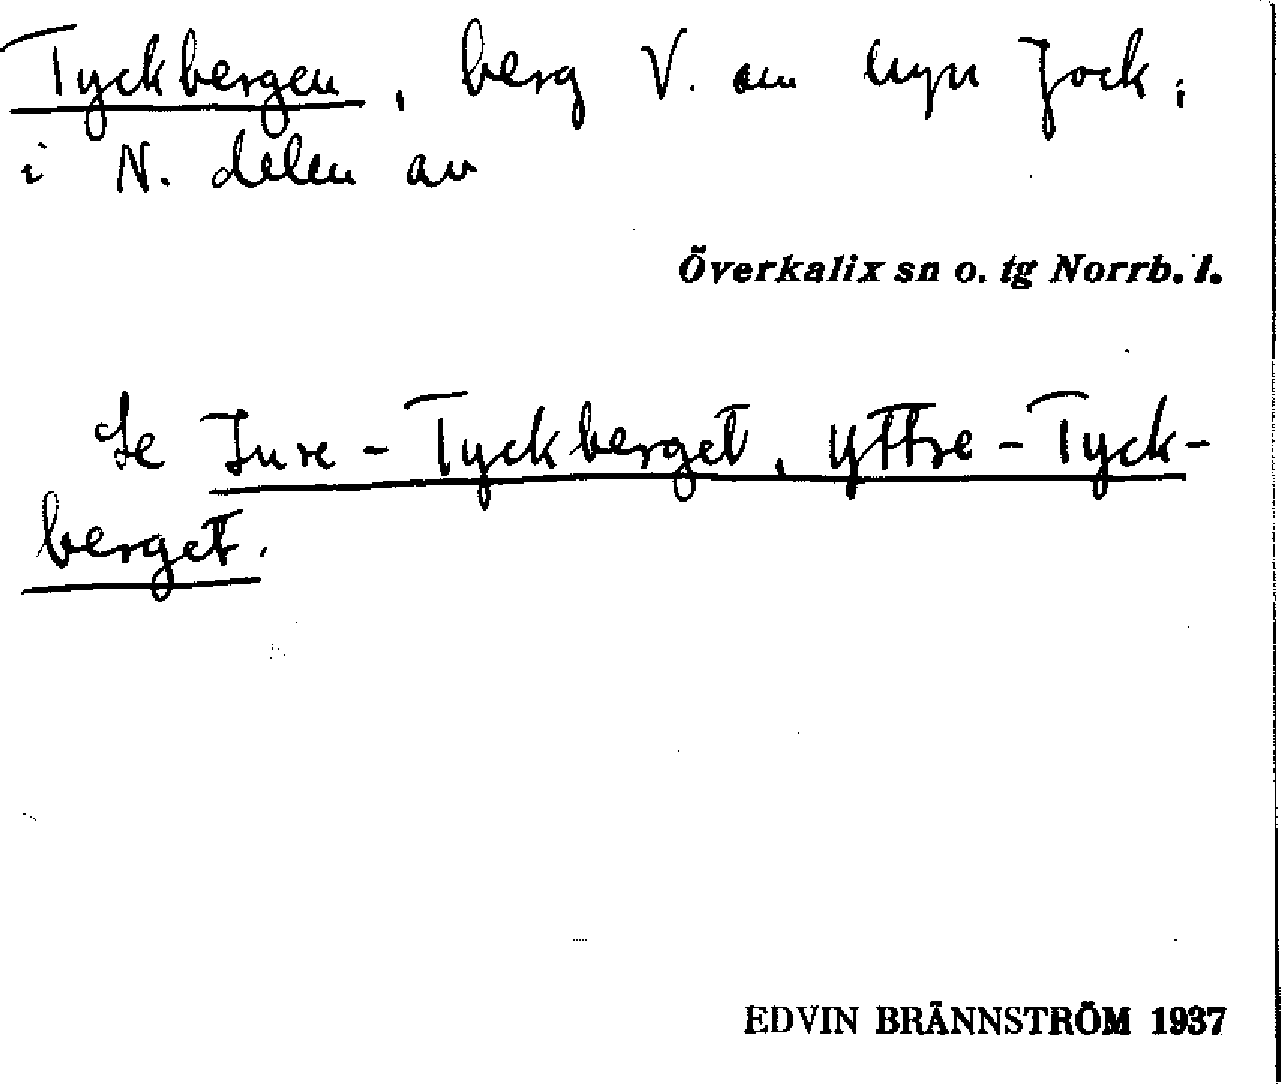 Tyckbergen, berg V. om nyn Jock,
i N. delen av
Överkalix sn o. tg Norrb. l.
Se Inre-Tyckberget, Yttre-Tyck-
berget.
EDVIN BRÄNNSTRÖM 1937